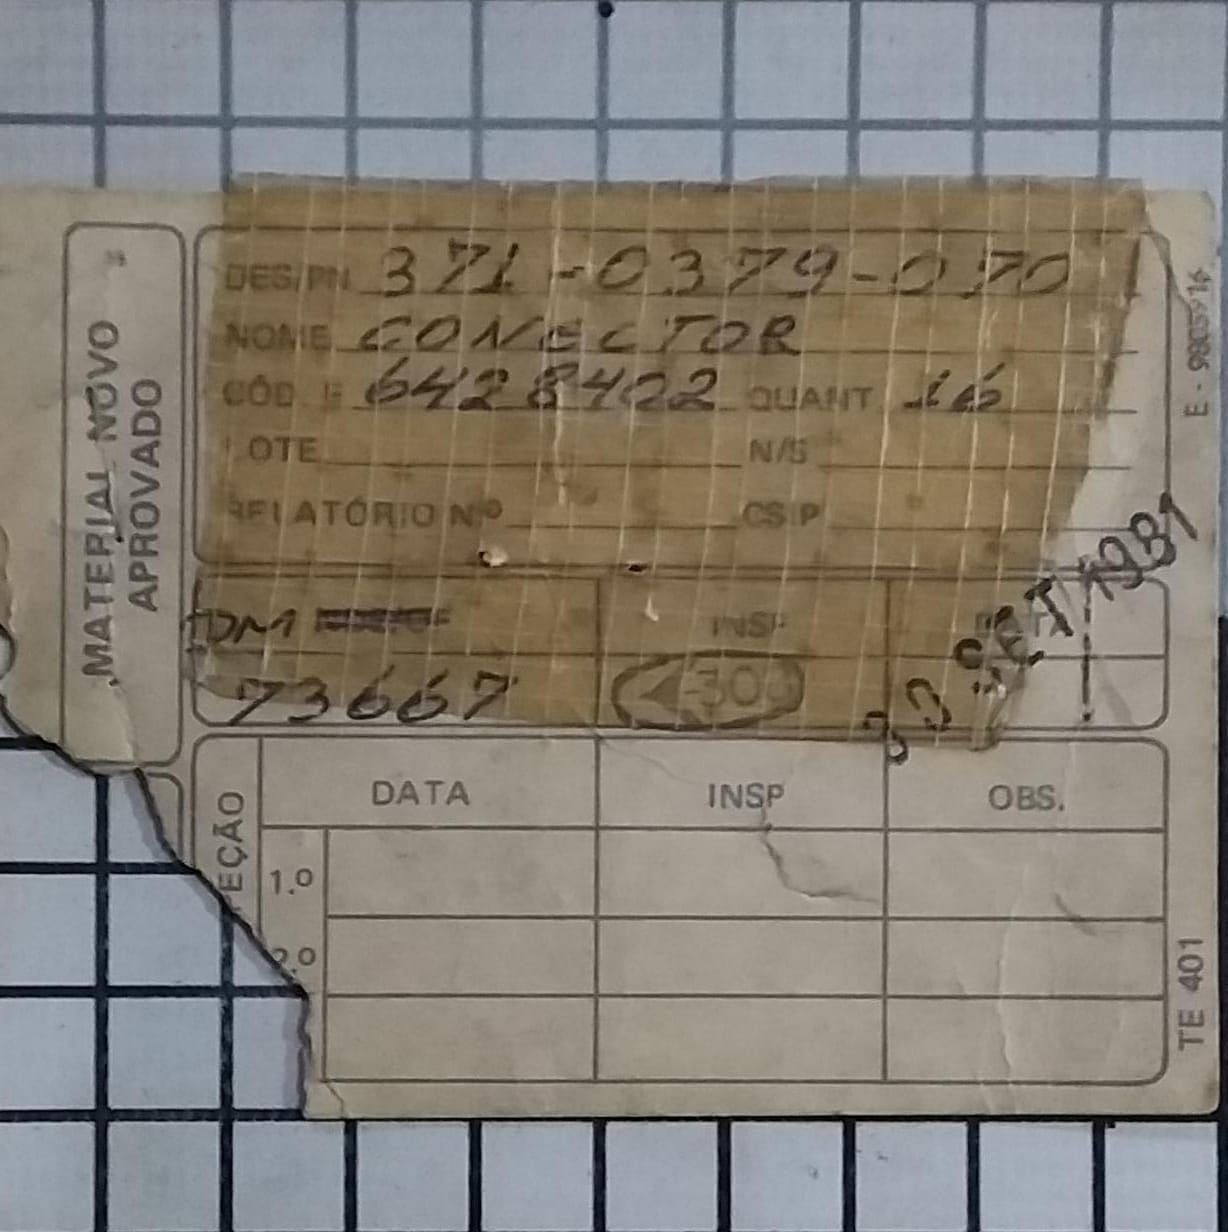 MATERIAL NOVO
APROVADO
DES/PN 371-0379-070
NOME CONECTOR
CÓD. 6428402 QUANT. 16
LOTE N/S
RELATÓRIO Nº CSIP
DM INSP
73667
30 SET 1981
DATA INSP OBS.
1.º
2.º
TE 401